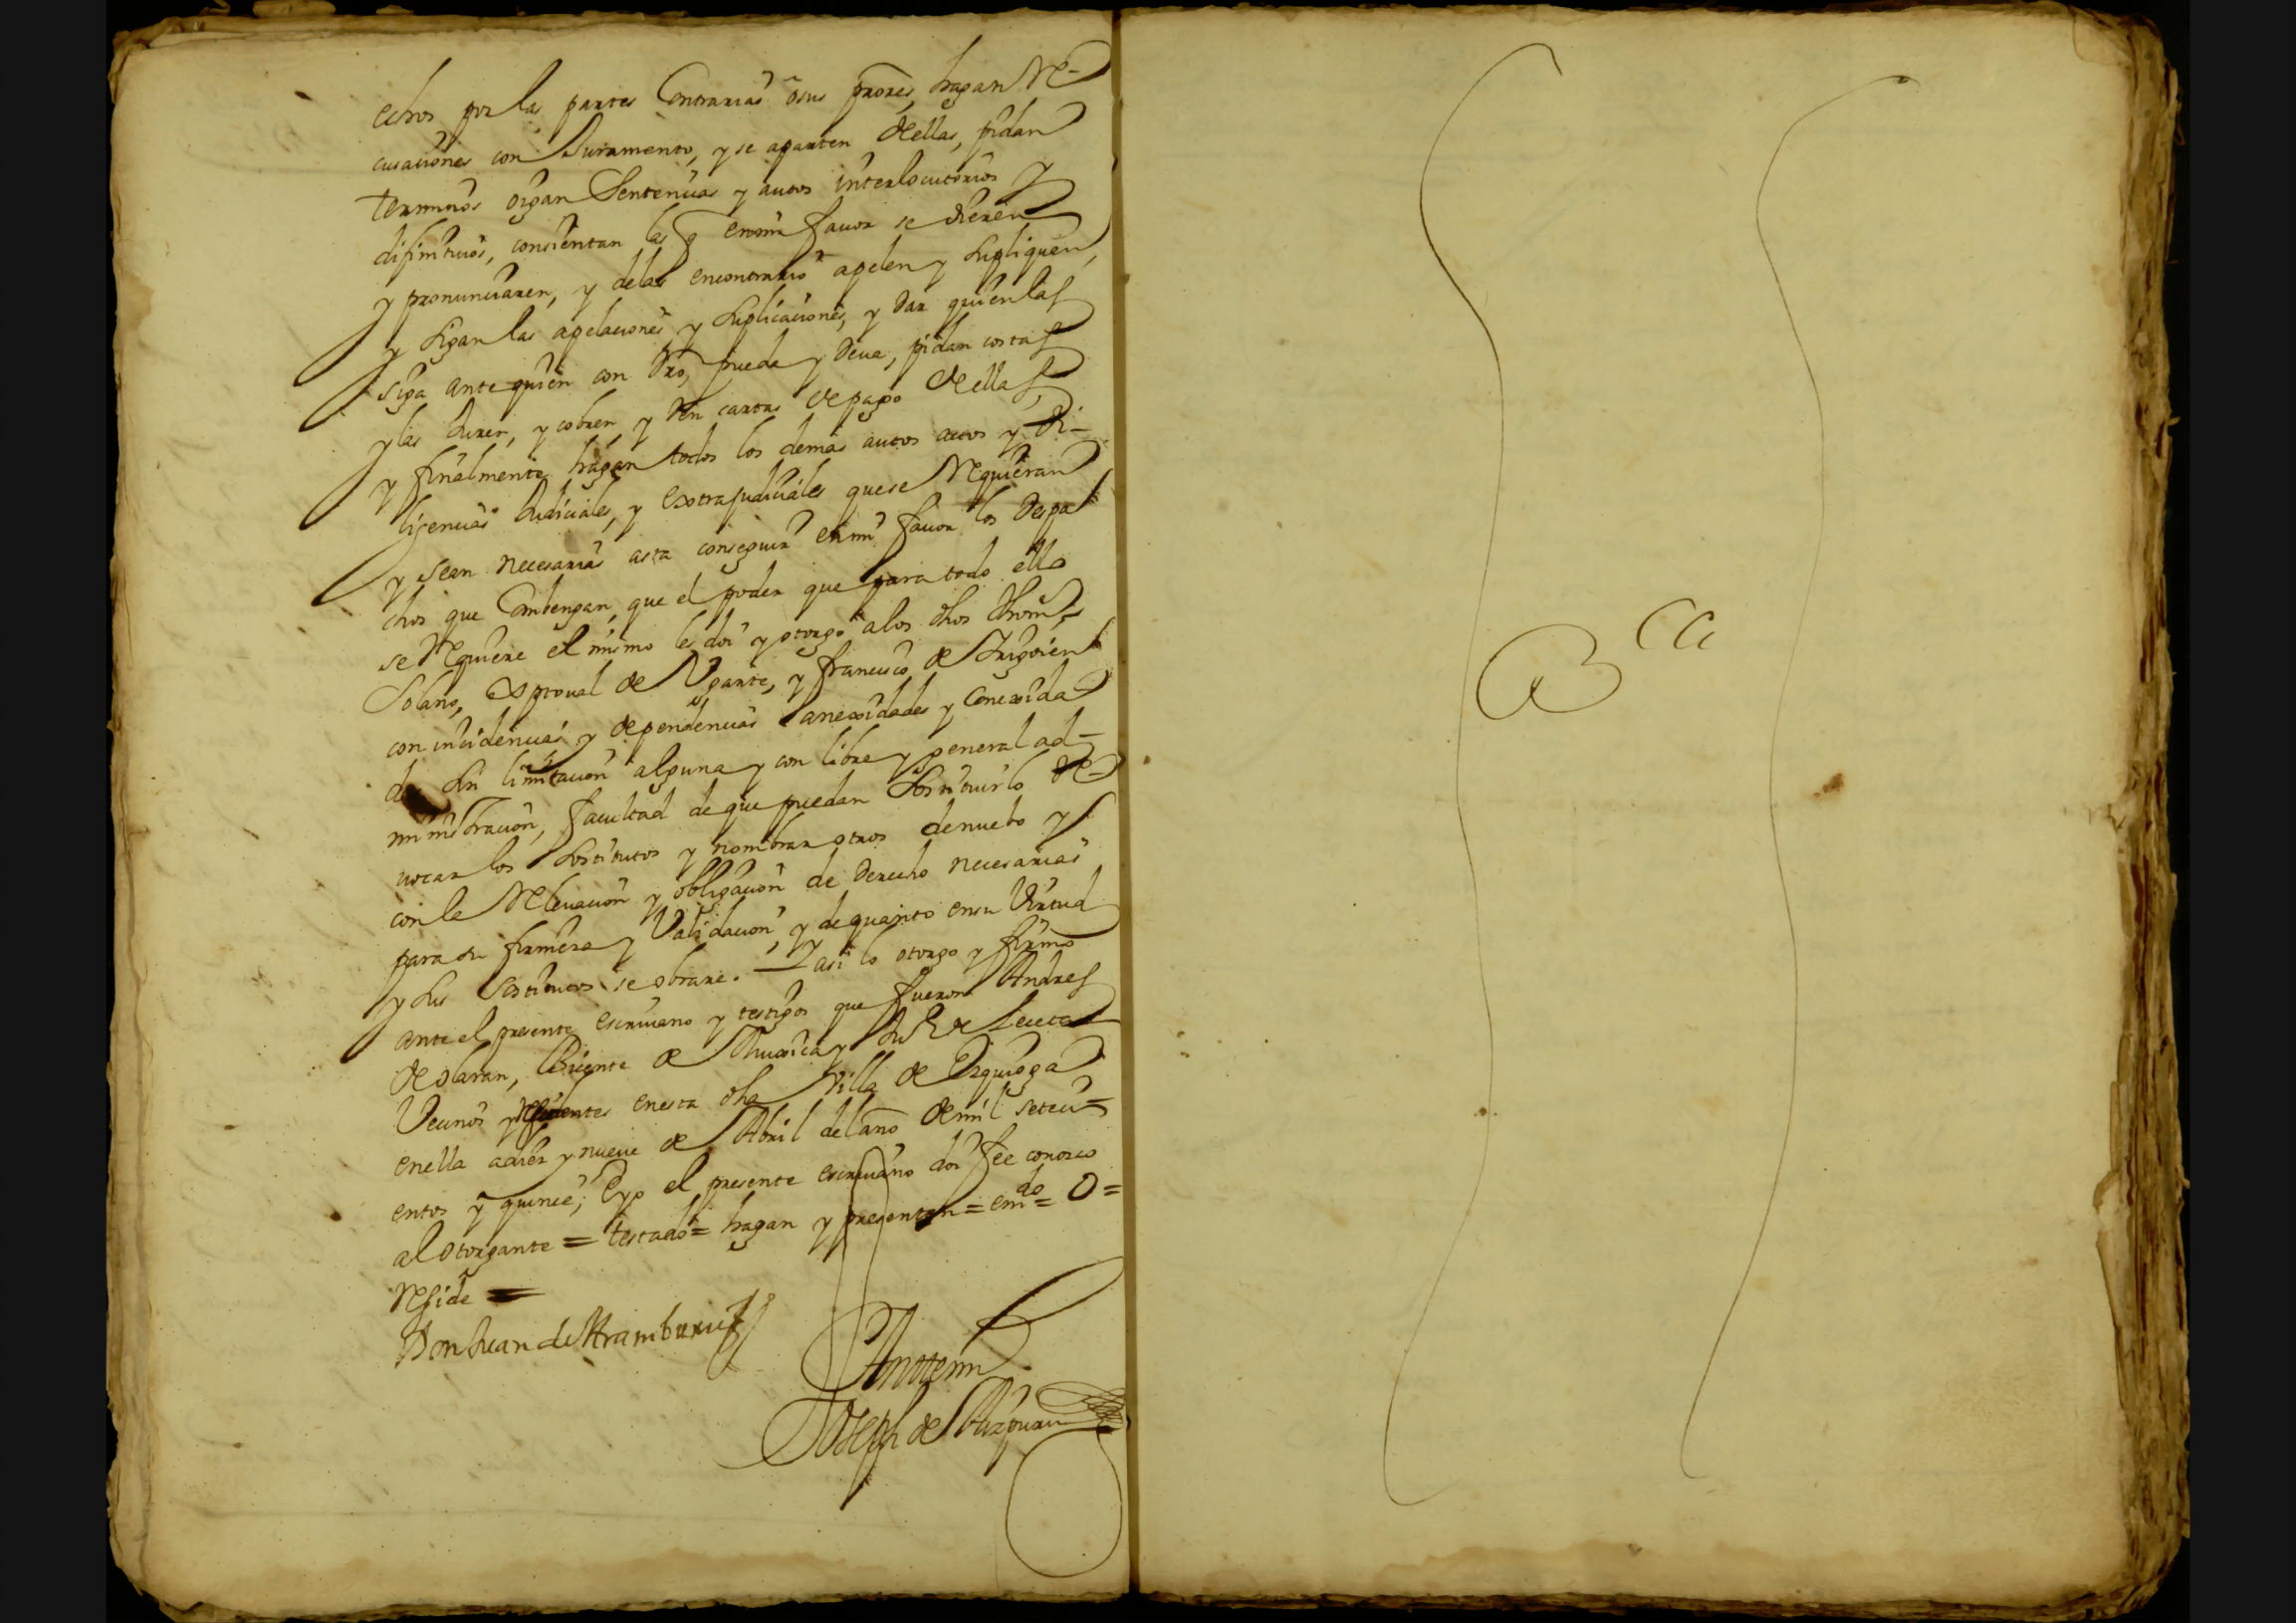 echos por las partes Contrarias o sus prores, hagan Re-
cusaciones con Juramento, y se aparten dellas, pidan
terminos oigan Sentencias y autos interlocutorios y
difinitiuos, consientan las q en mi fauor se dieren
y pronunciaren, y delas encontrario apelen y supliquen,
y sigan las apelaciones y suplicaciones, y dar quien las
siga ante quien con dro, pueda y deua, pidan costas
y las Juren, y cobren, y den cartas de pago dellas,
y finalmente hagan todos los demas autos actos y di-
ligencias Judiciales, y extrajudiciales que se Requieran
y sean necesarias asta conseguir en mi fauor los despa
chos que Combengan, que el poder que para todo ello
se Requiere el mismo les doi y otorgo alos dhos
Solano, de Vgarte, y francisco de Irigoien
con incidencias y dependencias anexidades y Conexida
des sin limitacion alguna y con libre y general ad-
ministracion, facultad de que puedan sostituirlo Re-
uocar los sostitutos y nombrar otros de nuebo y
con la Releuacion y obligacion de derecho necesarias
para su firmeza y Validacion, y de quanto en su Virtud
y sus sostitutos se obrare. Y asi lo otorgo y firmo
ante el presente escriuano y testigos que fueron Andres
de olaran, de y de
Vecinos y Residentes en esta dha Villa de Ezquioga
en ella a diez y nueue de Abril del año de mil setezi=
entos y quince; E yo el presente escriuano doi fee conozco
al otorgante = testado = hagan y presenten = emdo = O =
Reside =
Don Juan de Aramburu
Antemi
Joseph de Aizpuru